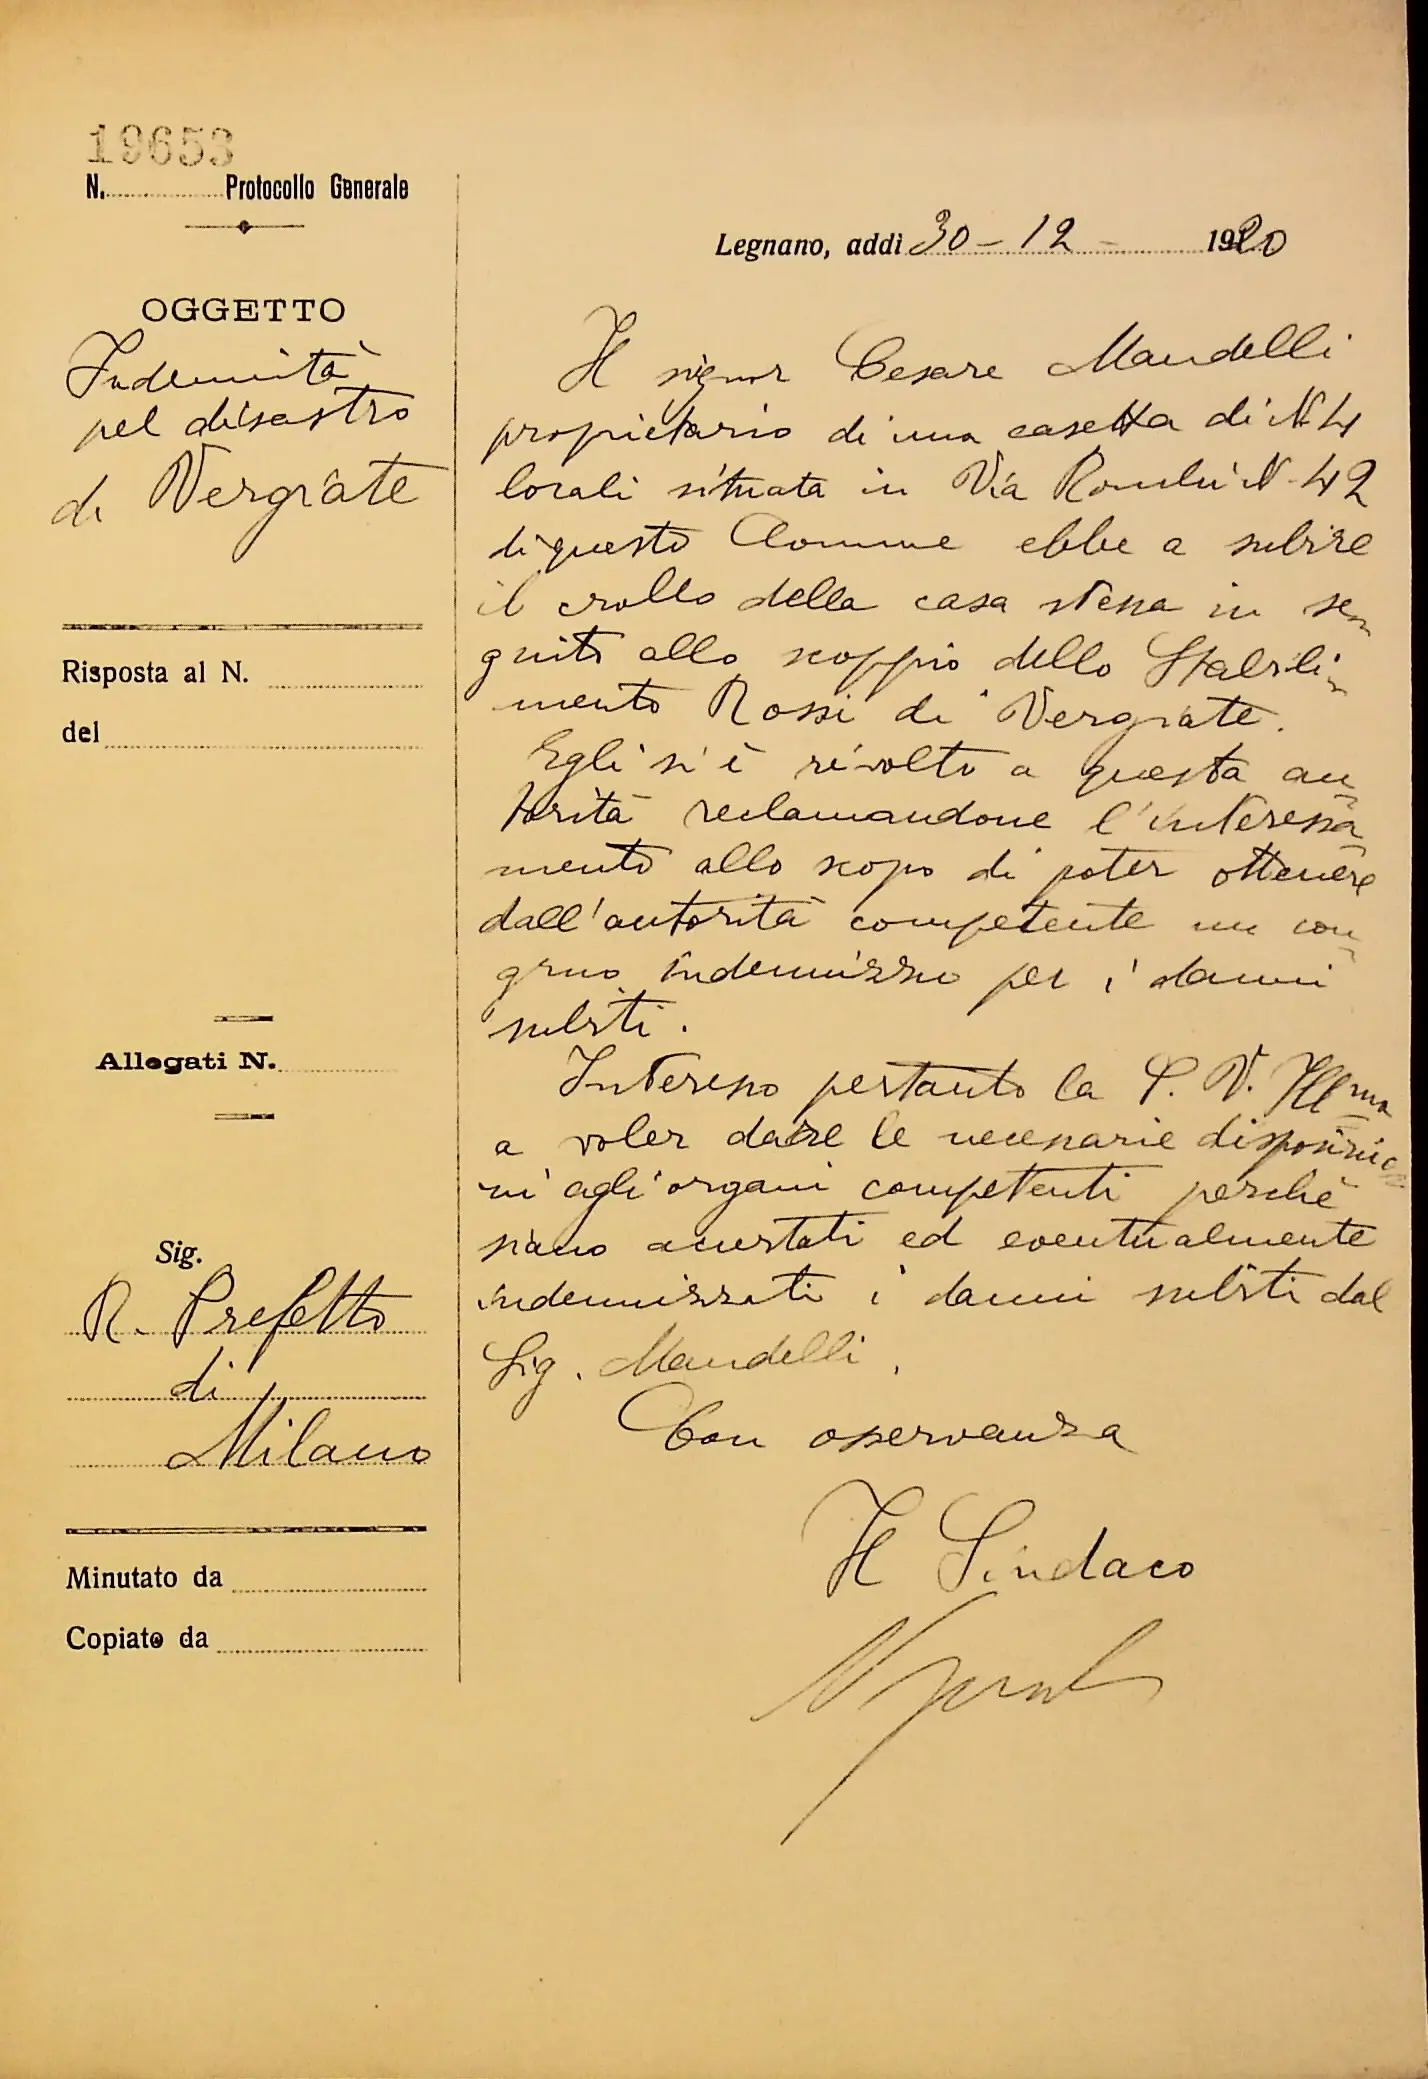 19653
N. Protocollo Generale
OGGETTO
Indennità
pel disastro
di Vergiate
Risposta al N.
del
Allegati N.
Sig.
R. Prefetto
di
Milano
Minutato da
Copiato da
Legnano, addì 30 - 12 - 1920
Il signor Cesare Mandelli
proprietario di una casetta di N 4
locali situata in Via N. 42
di questo Comune ebbe a subire
il crollo della casa stessa in se
guito allo scoppio dello Stabili
mento Rossi di Vergiate.
Egli si è rivolto a questa au
torità reclamandone l'interessa
mento allo scopo di poter ottenere
dall'autorità competente un con
gruo indennizzo per i danni
subiti.
Interesso pertanto la S. V. Ill.ma
a voler dare le necessarie disposizio
ni agli organi competenti perchè
siano accertati ed eventualmente
indennizzati i danni subiti dal
Sig. Mandelli.
Con osservanza
Il Sindaco